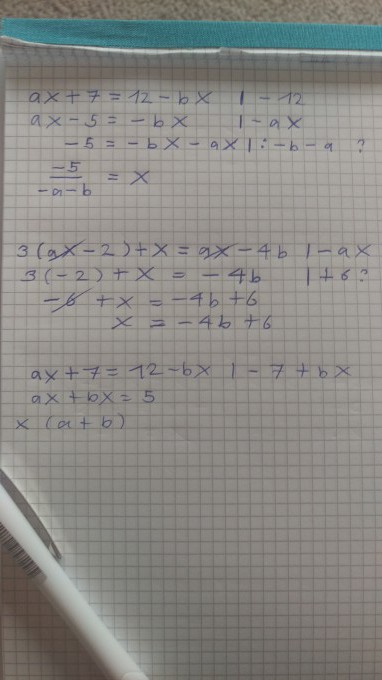 ax + 7 = 12 - bx | - 12
ax - 5 = - bx | - ax
- 5 = - bx - ax | : - b - a ?
-5 / -a-b = x
3 (ax - 2) + x = ax - 4b | - ax
3 (- 2) + x = - 4b | + 6 ?
- 6 + x = - 4b + 6
x = - 4b + 6
ax + 7 = 12 - bx | - 7 + bx
ax + bx = 5
x (a + b)